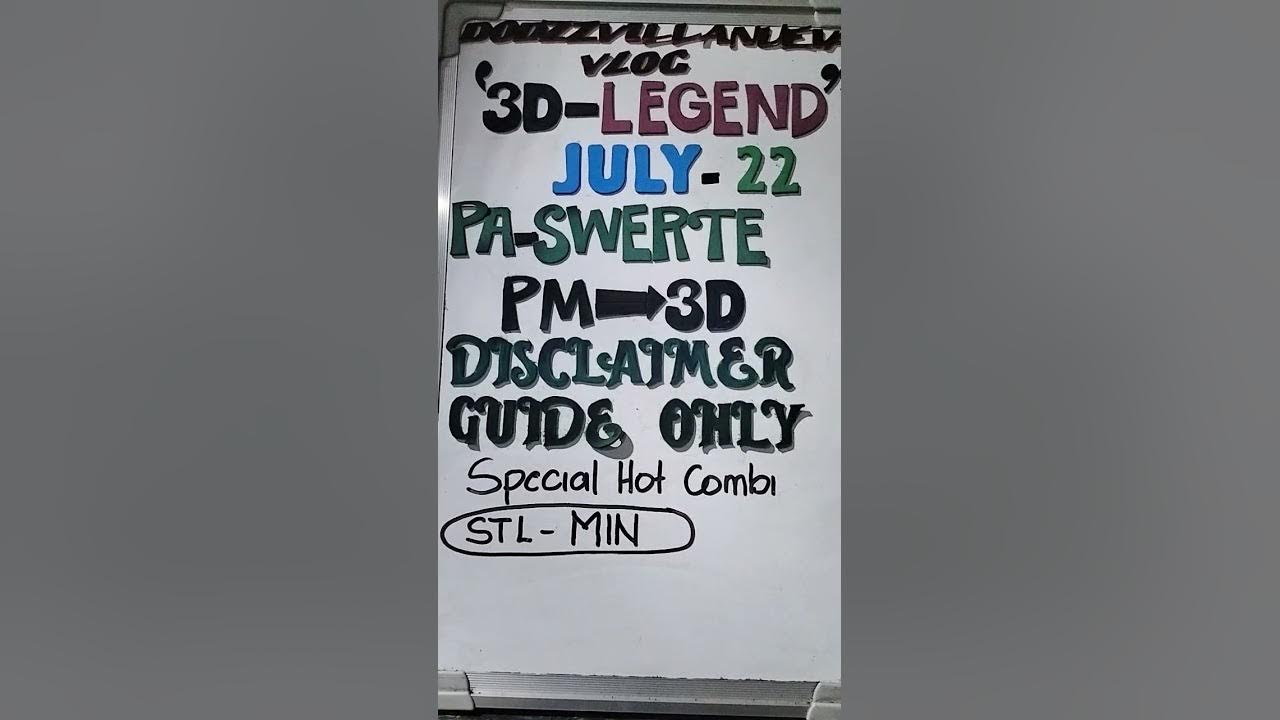 DODZZVILLANUEVA
VLOG
'3D-LEGEND'
JULY-22
PA-SWERTE
PM➡3D
DISCLAIMER
GUIDE ONLY
Special Hot Combi
STL-MIN